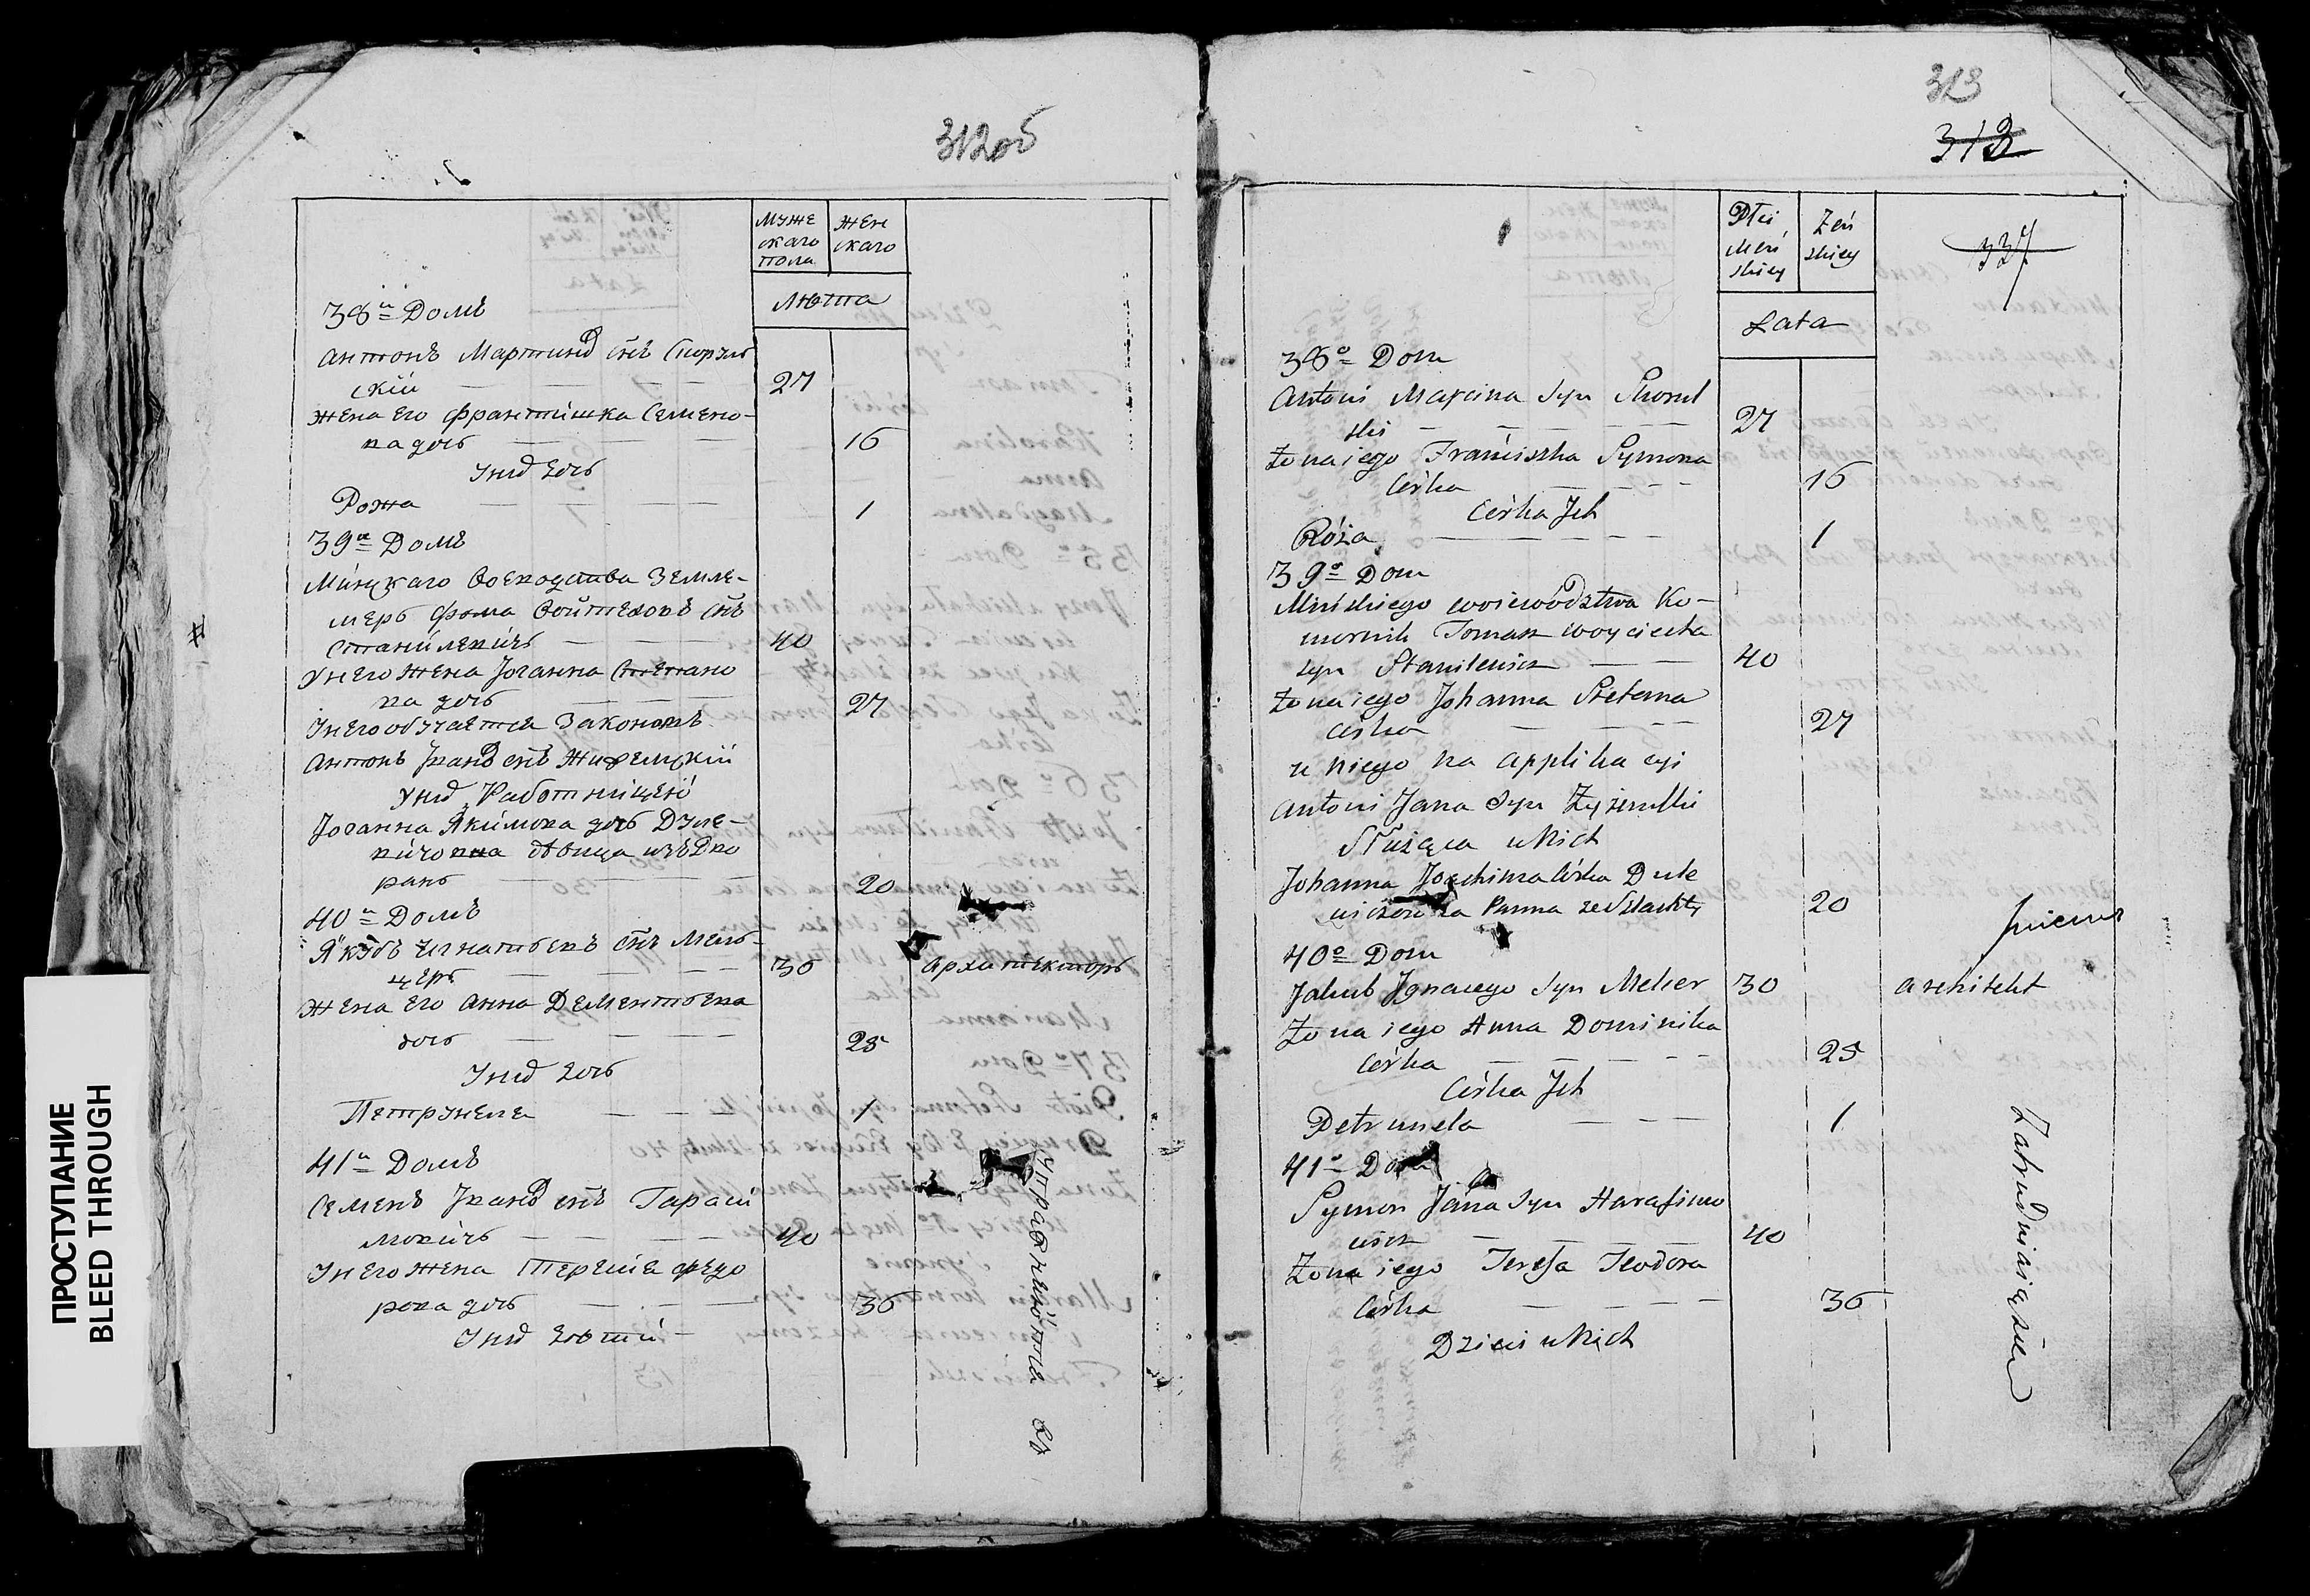 ПРОСТУПАНИЕ
BLEED THROUGH
312об
Муже
скаго
пола
Жен
скаго
Лѣта
38й Домъ
Антонъ Мартина снъ
скій 27
Жена Его Франтишка Семено-
ва дочь 16
У нихъ дочь
Рожа 1
39й Домъ
Минскаго Воеводства Земле-
меръ Фома Войтеховъ снъ
Станилевичъ 40
У него Жена Іоганна Степано
ва дочь 27
У него обучается Закономъ
Антонъ Ивана снъ Жижемскій
У нихъ Работницею
Іоганна Якимова дочь Дуле-
вичовна девица изъ Дво
рянъ 20
40й Домъ
Якубъ Игнатьевъ снъ Мель-
церъ 30 Архитекторъ
Жена Его Анна Дементьева
дочь 25
У нихъ дочь
Петрунеля 1
41й Домъ
Семенъ Ивана снъ Гараси
мовичъ 40
У него Жена Тересiя Федо
рова дочь 36
У нихъ дети
Упражнено въ
313
313
337
Płci
Męs
skiey
Żeń
skiey
Lata
38o Dom
Antoni Marcina Syn Skorul
ski 27
Żona iego Franciszka Symona
Córka 16
Córka Ich
Róża 1
39o Dom
Mińskiego woiewodztwa Ko-
mornik Tomasz woyciecha
syn Stanilewicz 40
Żona iego Johanna Stefana
Córka 27
u niego na applikacyi
Antoni Jana Syn Żyżemski
Służąca u Nich
Johanna Joachima Córka Dule
wiczowna Panna ze Szlachty 20
40o Dom
Jakub Ignacego Syn Melcer 30 architekt
Żona iego Anna Dominika
Córka 25
Córka Ich
Petrunela 1
41o Dom
Symon Jana Syn Harasimo
wicz 40
Żona iego Teresa Teodora
Córka 36
Dzieci u Nich
Zatrudniaią się